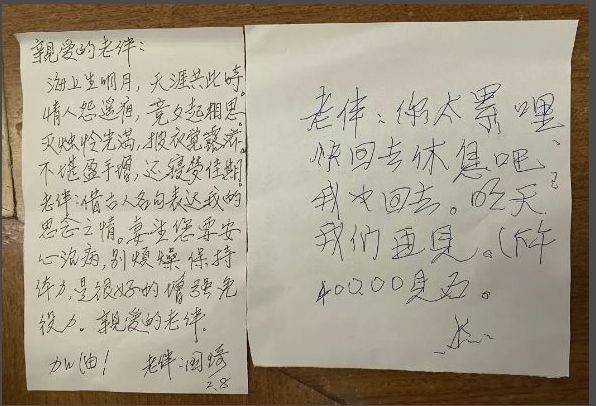 親爱的老伴:
海上生明月,天涯共此时。
情人怨遥夜,竟夕起相思。
灭烛怜光满,披衣觉露滋。
不堪盈手赠,还寝梦佳期。
老伴:借古人名句表达我的
思念之情。妻望您要安
心治病,别烦燥保持
体力,是很好的增强免
役力。親爱的老伴,
加油! 老伴:国琦
2.8
老伴:你太累哩、
快回去休息吧、
我也回去。明天
我们再见。(下午
4:00:00见面。